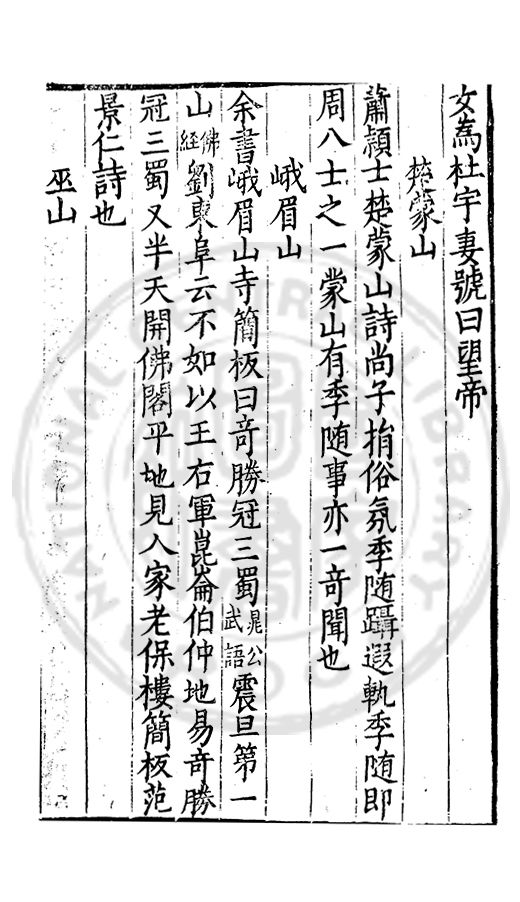 女為杜宇妻號曰望帝
楚蒙山
蕭頴士楚蒙山詩尚子捐俗氛季随躡遐軌季随即
周八士之一蒙山有季随事亦一奇聞也
峨眉山
余書峨眉山寺簡板曰奇勝冠三蜀晁公武語震旦第一
山佛經劉東阜云不如以王右軍崑崙伯仲地易奇勝
冠三蜀又半天開佛閣平地見人家老保樓簡板范
景仁詩也
巫山
NATIONAL CENTRAL LIBRARY